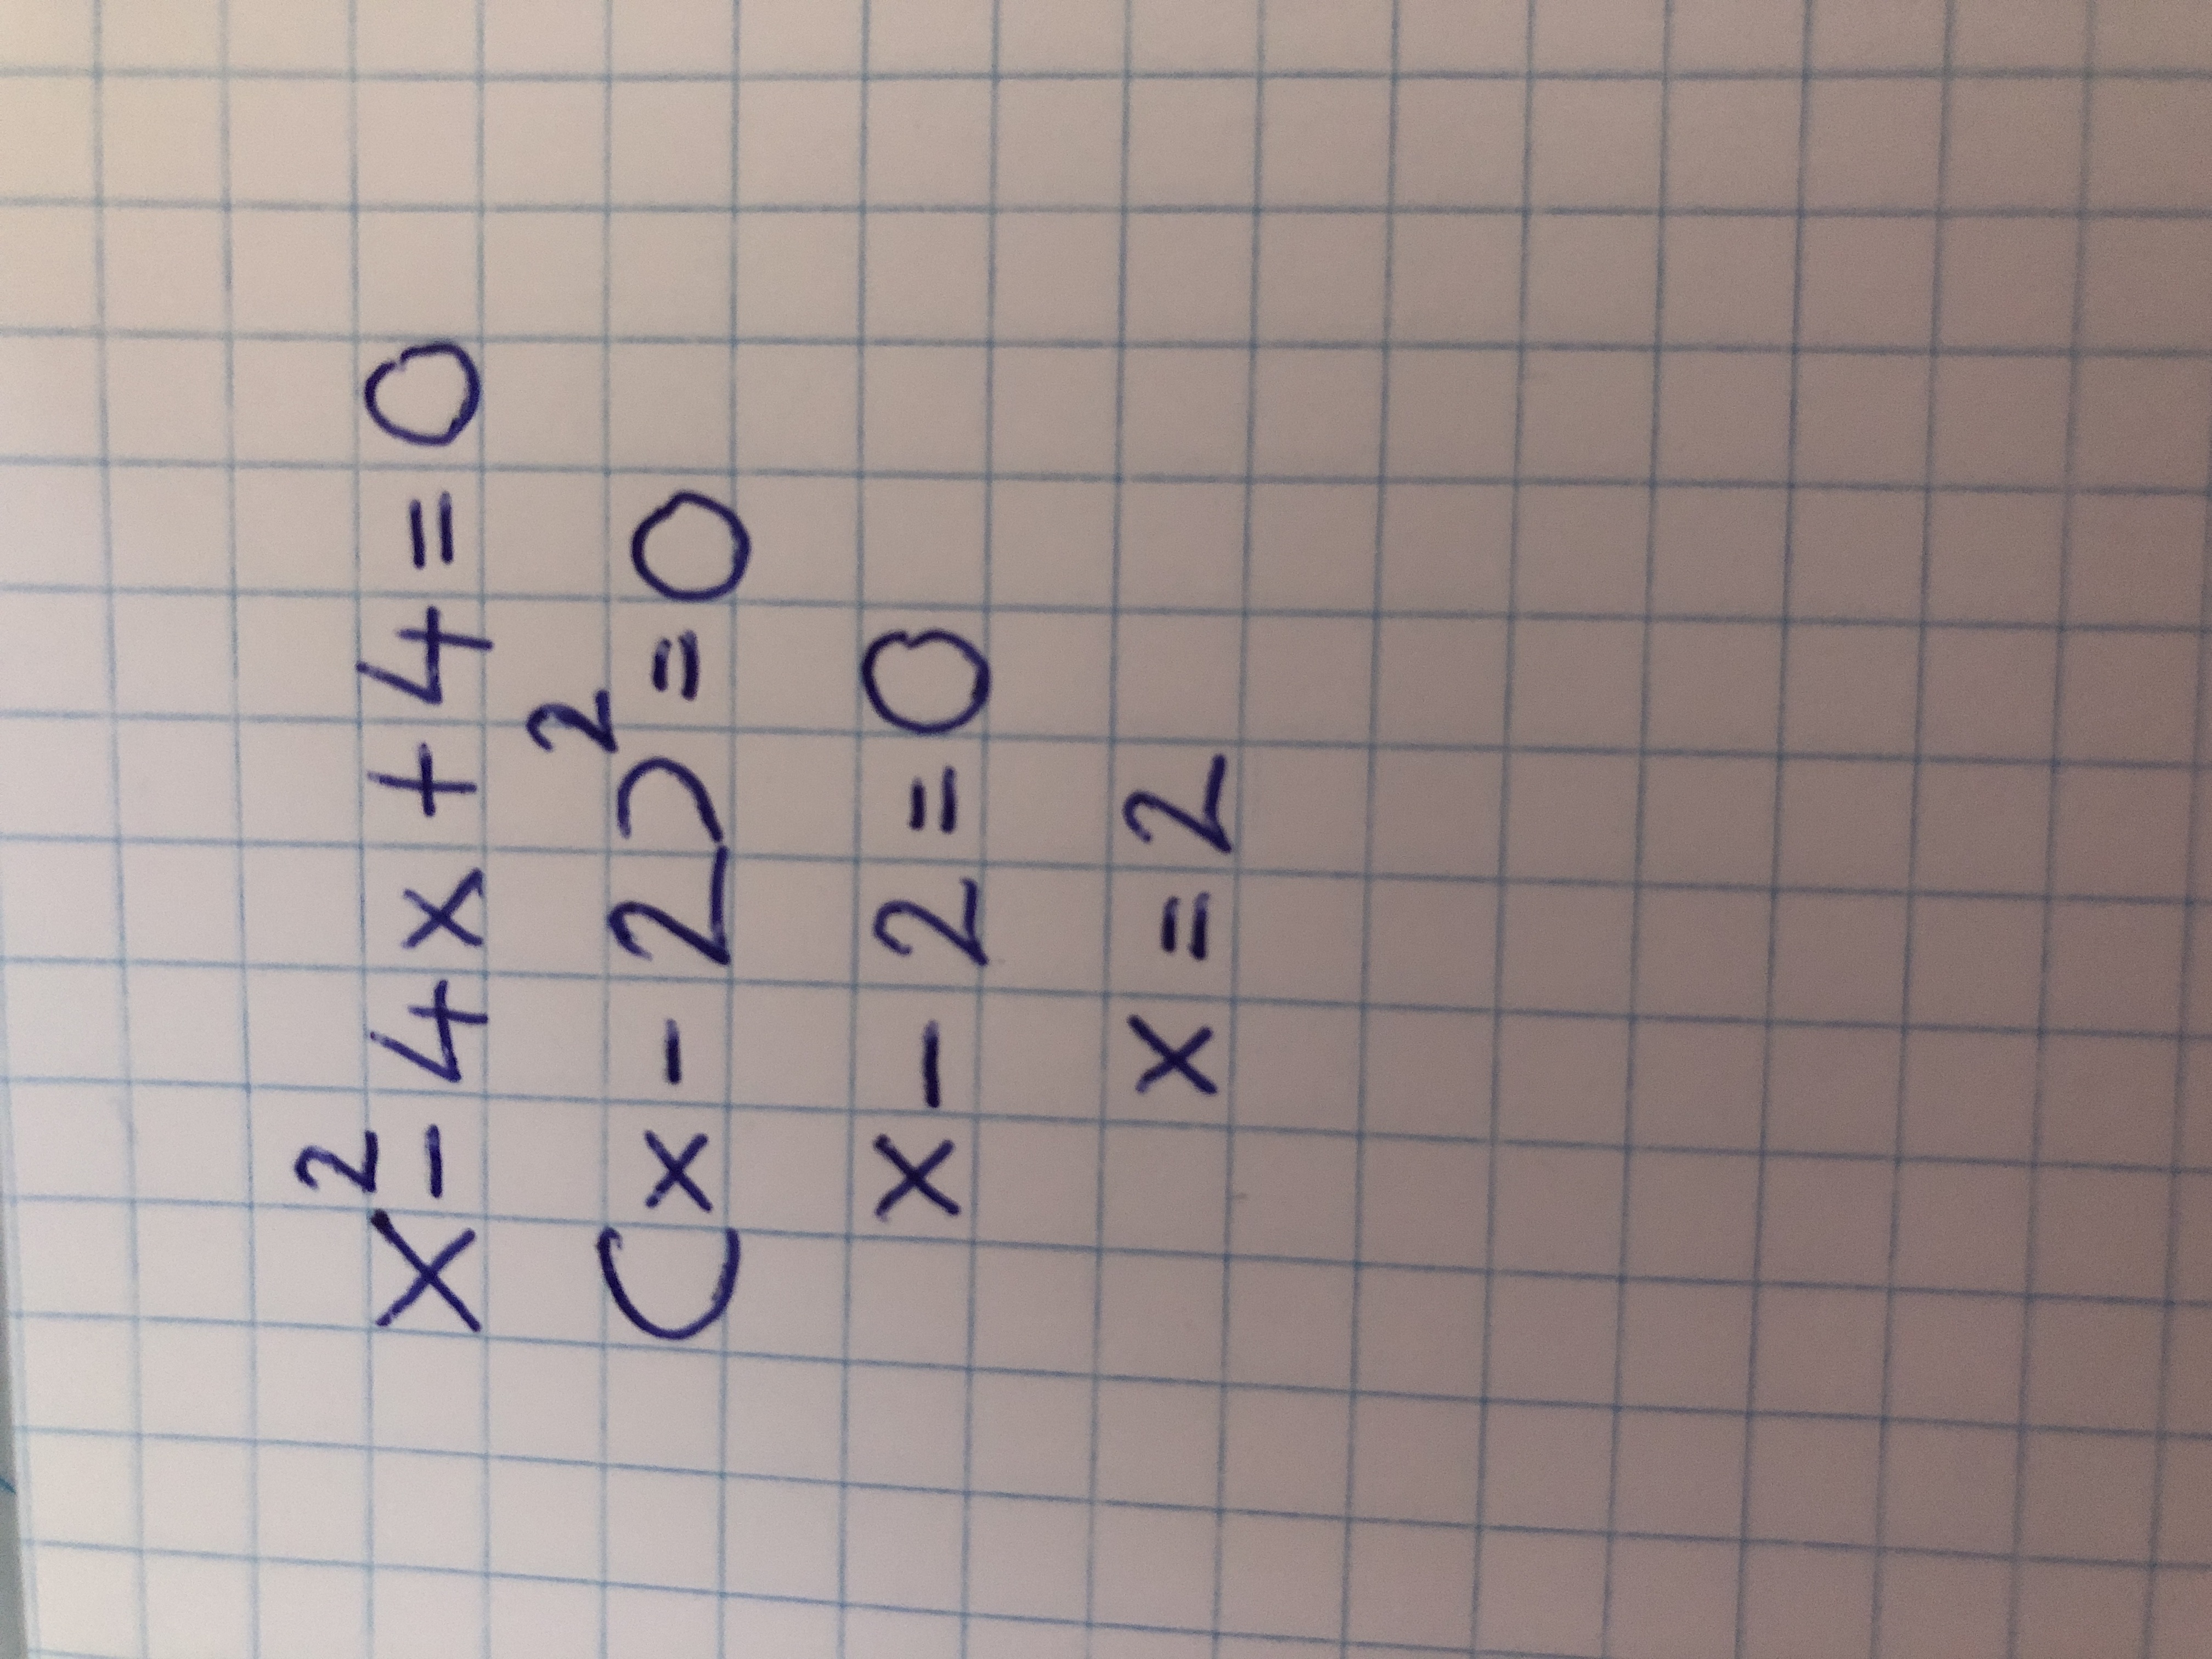 x²-4x+4=0
(x-2)²=0
x-2=0
x=2